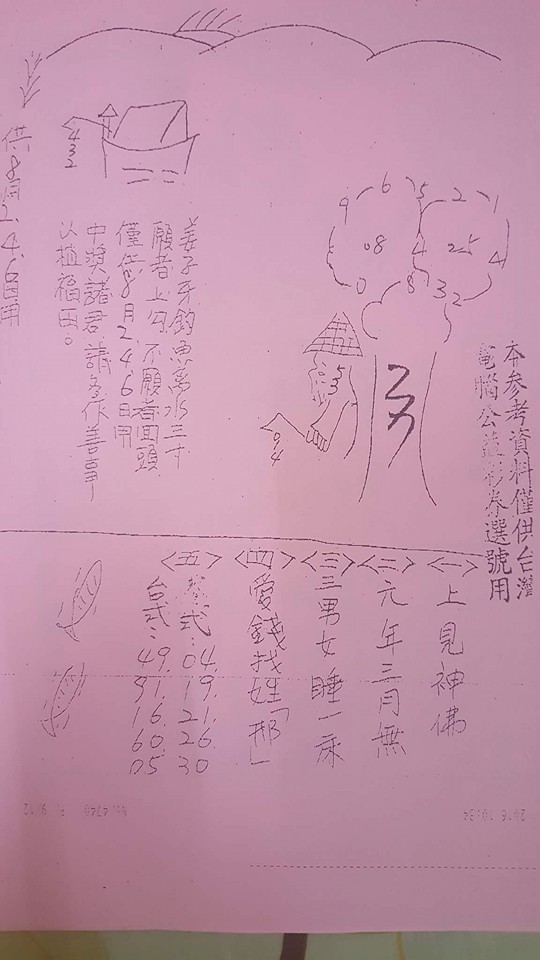 本參考資料僅供台灣
電腦公益彩券選號用
6
5
2
1
9
08
4
25
4
0
8
3
2
53
04
432
姜子牙釣魚萬水三寸
願者上勾不願者回頭
僅供8月2.4.6日用
中獎諸君請多作善事
以植福田。
供8月2.4.6日用
<一>上見神佛
<二>元年三月無
<三>三男女睡一床
<四>愛錢找姓「邢」
<五>式:04.19.21.26.30
台式:49.91.16.60.05
2016 10:34
No.4740 P. 9/12